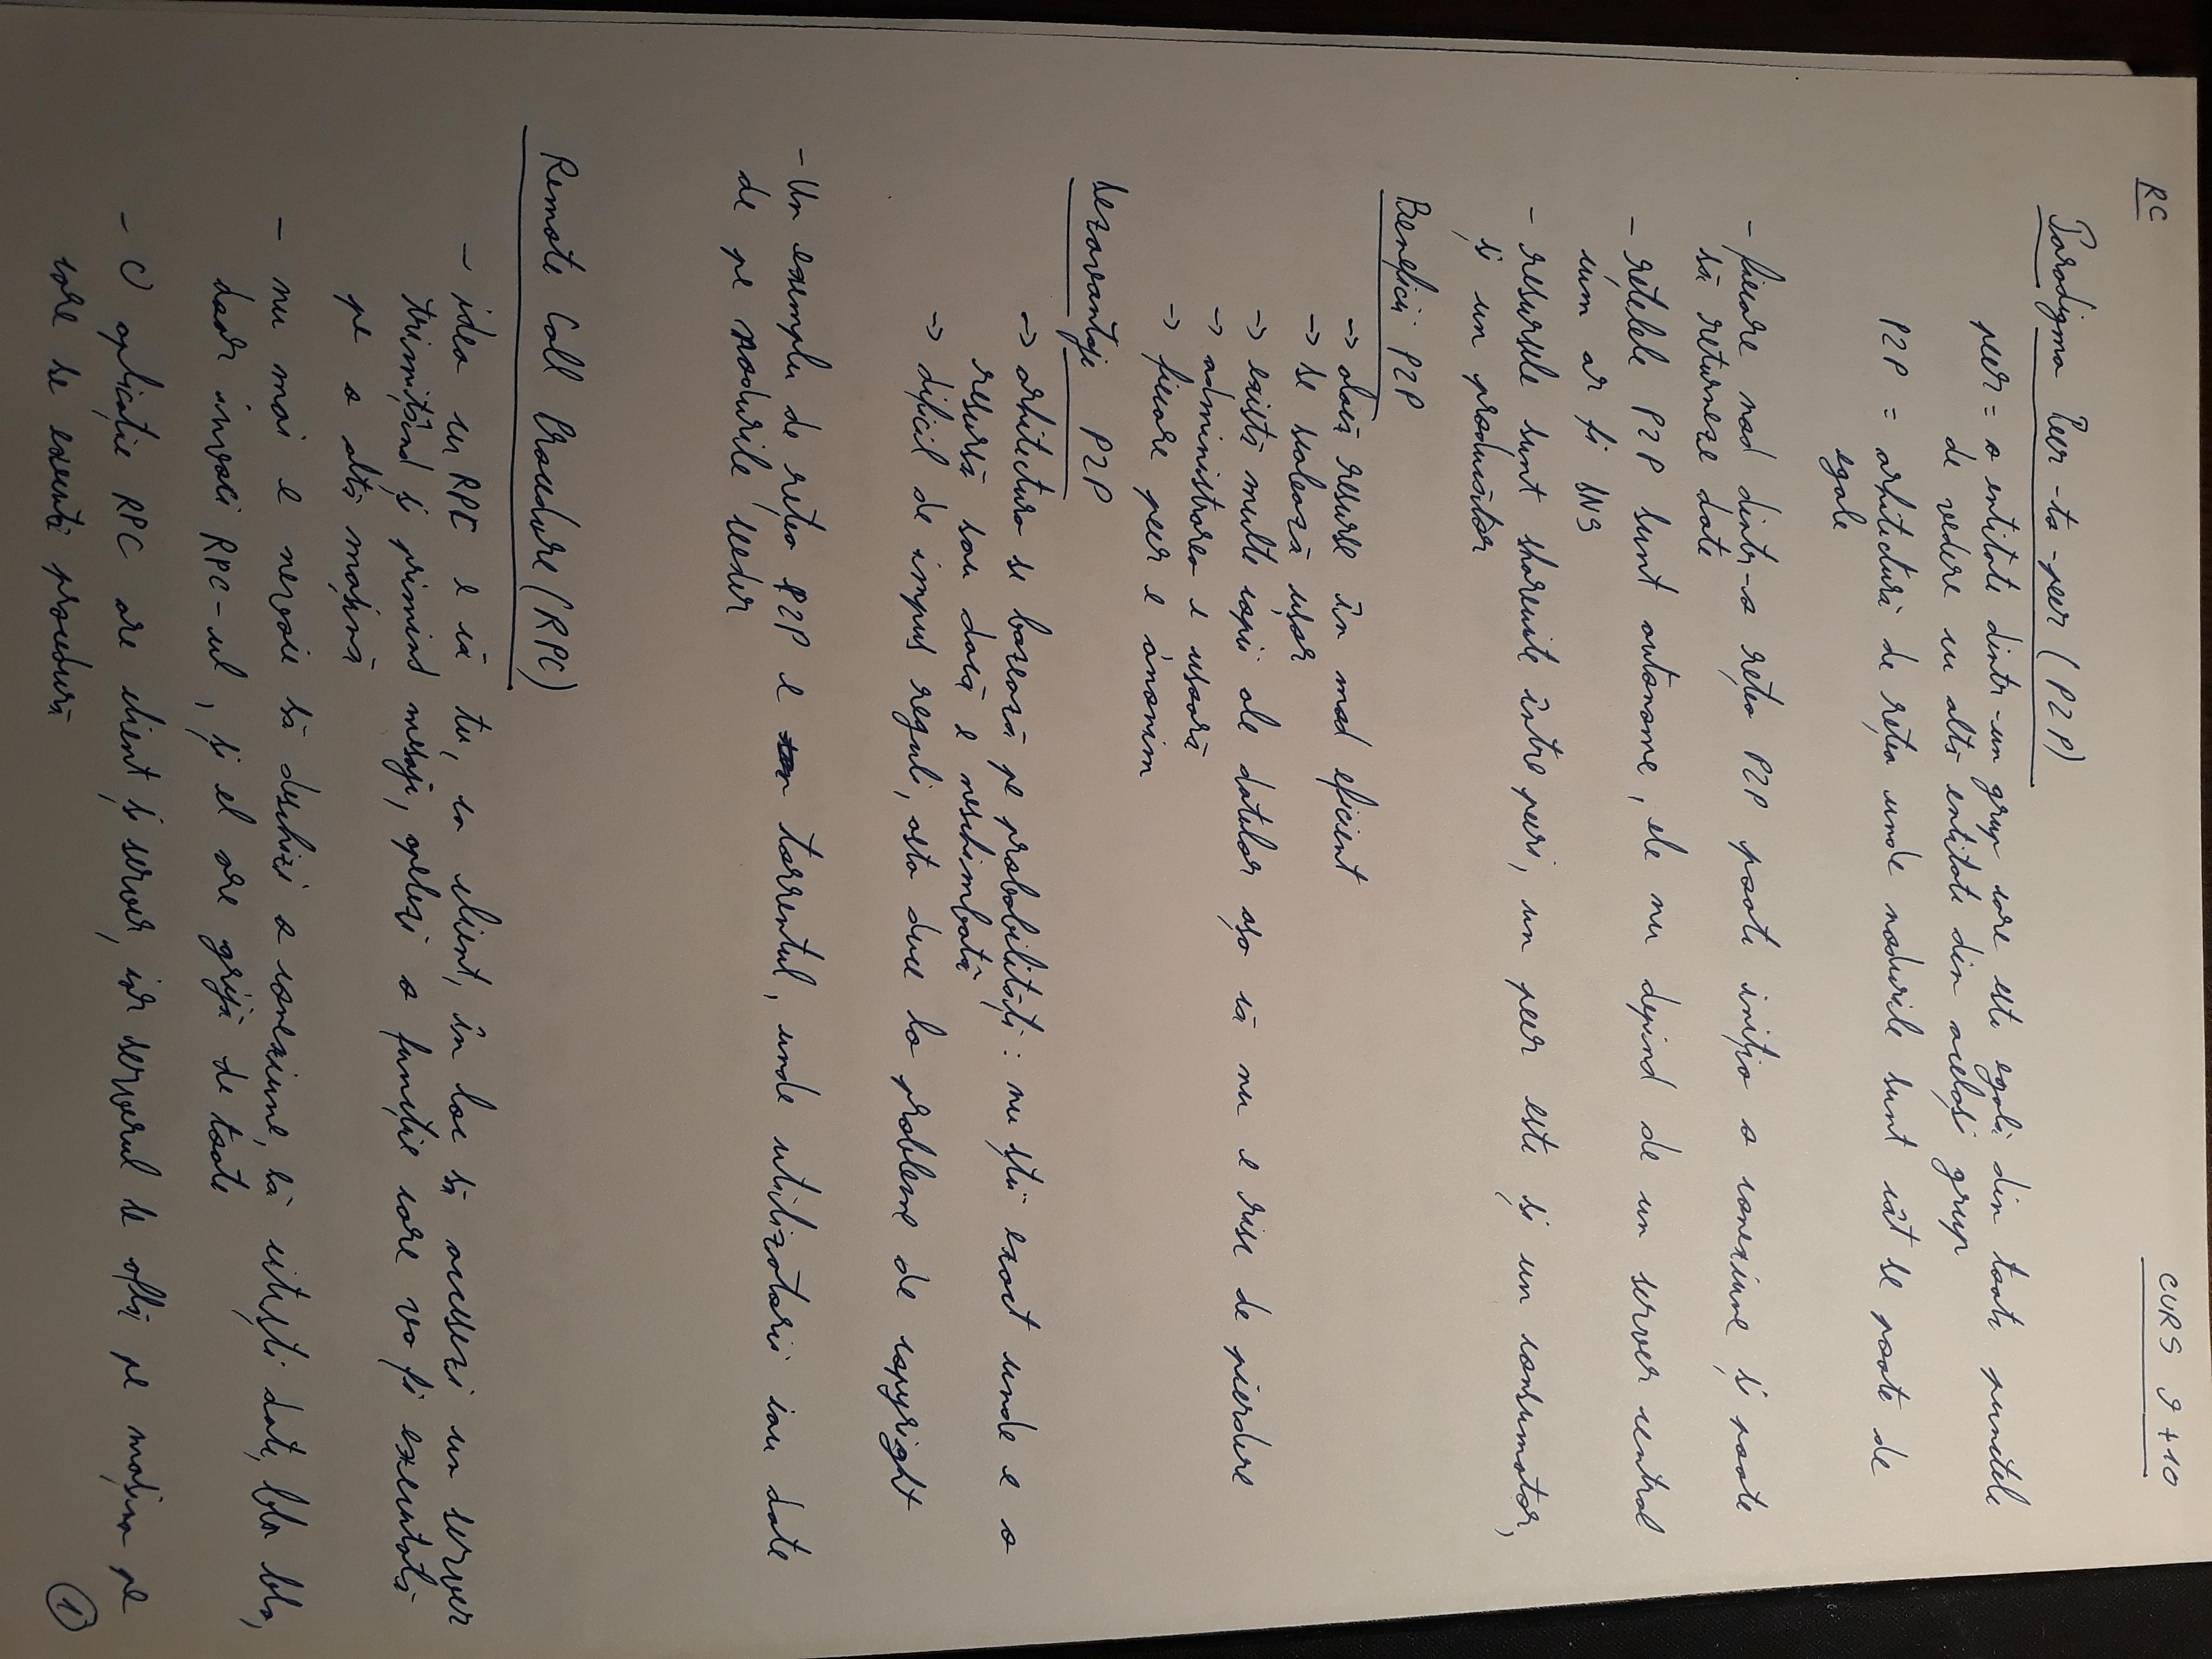 RC
CURS 9+10
Paradigma Peer-to-peer (P2P)
peer = o entitate dintr-un grup care este egală din toate punctele
de vedere cu altă entitate din același grup
P2P = arhitectură de rețea unde nodurile sunt cât se poate de
egale
- fiecare nod dintr-o rețea P2P poate iniția o conexiune și poate
să returneze date
- rețelele P2P sunt autonome, ele nu depind de un server central
cum ar fi DNS
- resursele sunt shareuite între peeri, un peer este și un consumator,
și un producător
Beneficii P2P
-> alocă resurse în mod eficient
-> se scalează ușor
-> există multe copii ale datelor așa că nu e risc de pierdere
-> administrarea e ușoară
-> fiecare peer e anonim
Dezavantaje P2P
-> arhitectura se bazează pe probabilități: nu știi exact unde e o
resursă sau dacă e neschimbată
-> dificil de impus reguli, asta duce la probleme de copyright
- Un exemplu de rețea P2P e torrentul, unde utilizatorii iau date
de pe nodurile seeder
Remote Call Procedure (RPC)
- idea cu RPC e că tu, ca client, în loc să accesezi un server
trimițând și primind mesaje, apelezi o funcție care va fi executată
pe o altă mașină
- nu mai e nevoie să deschizi o conexiune, să citești date, bla bla,
doar invoci RPC-ul, și el are grijă de toate
- O aplicație RPC are client și server, iar serverul se află pe mașina pe
care se execută procedură
1